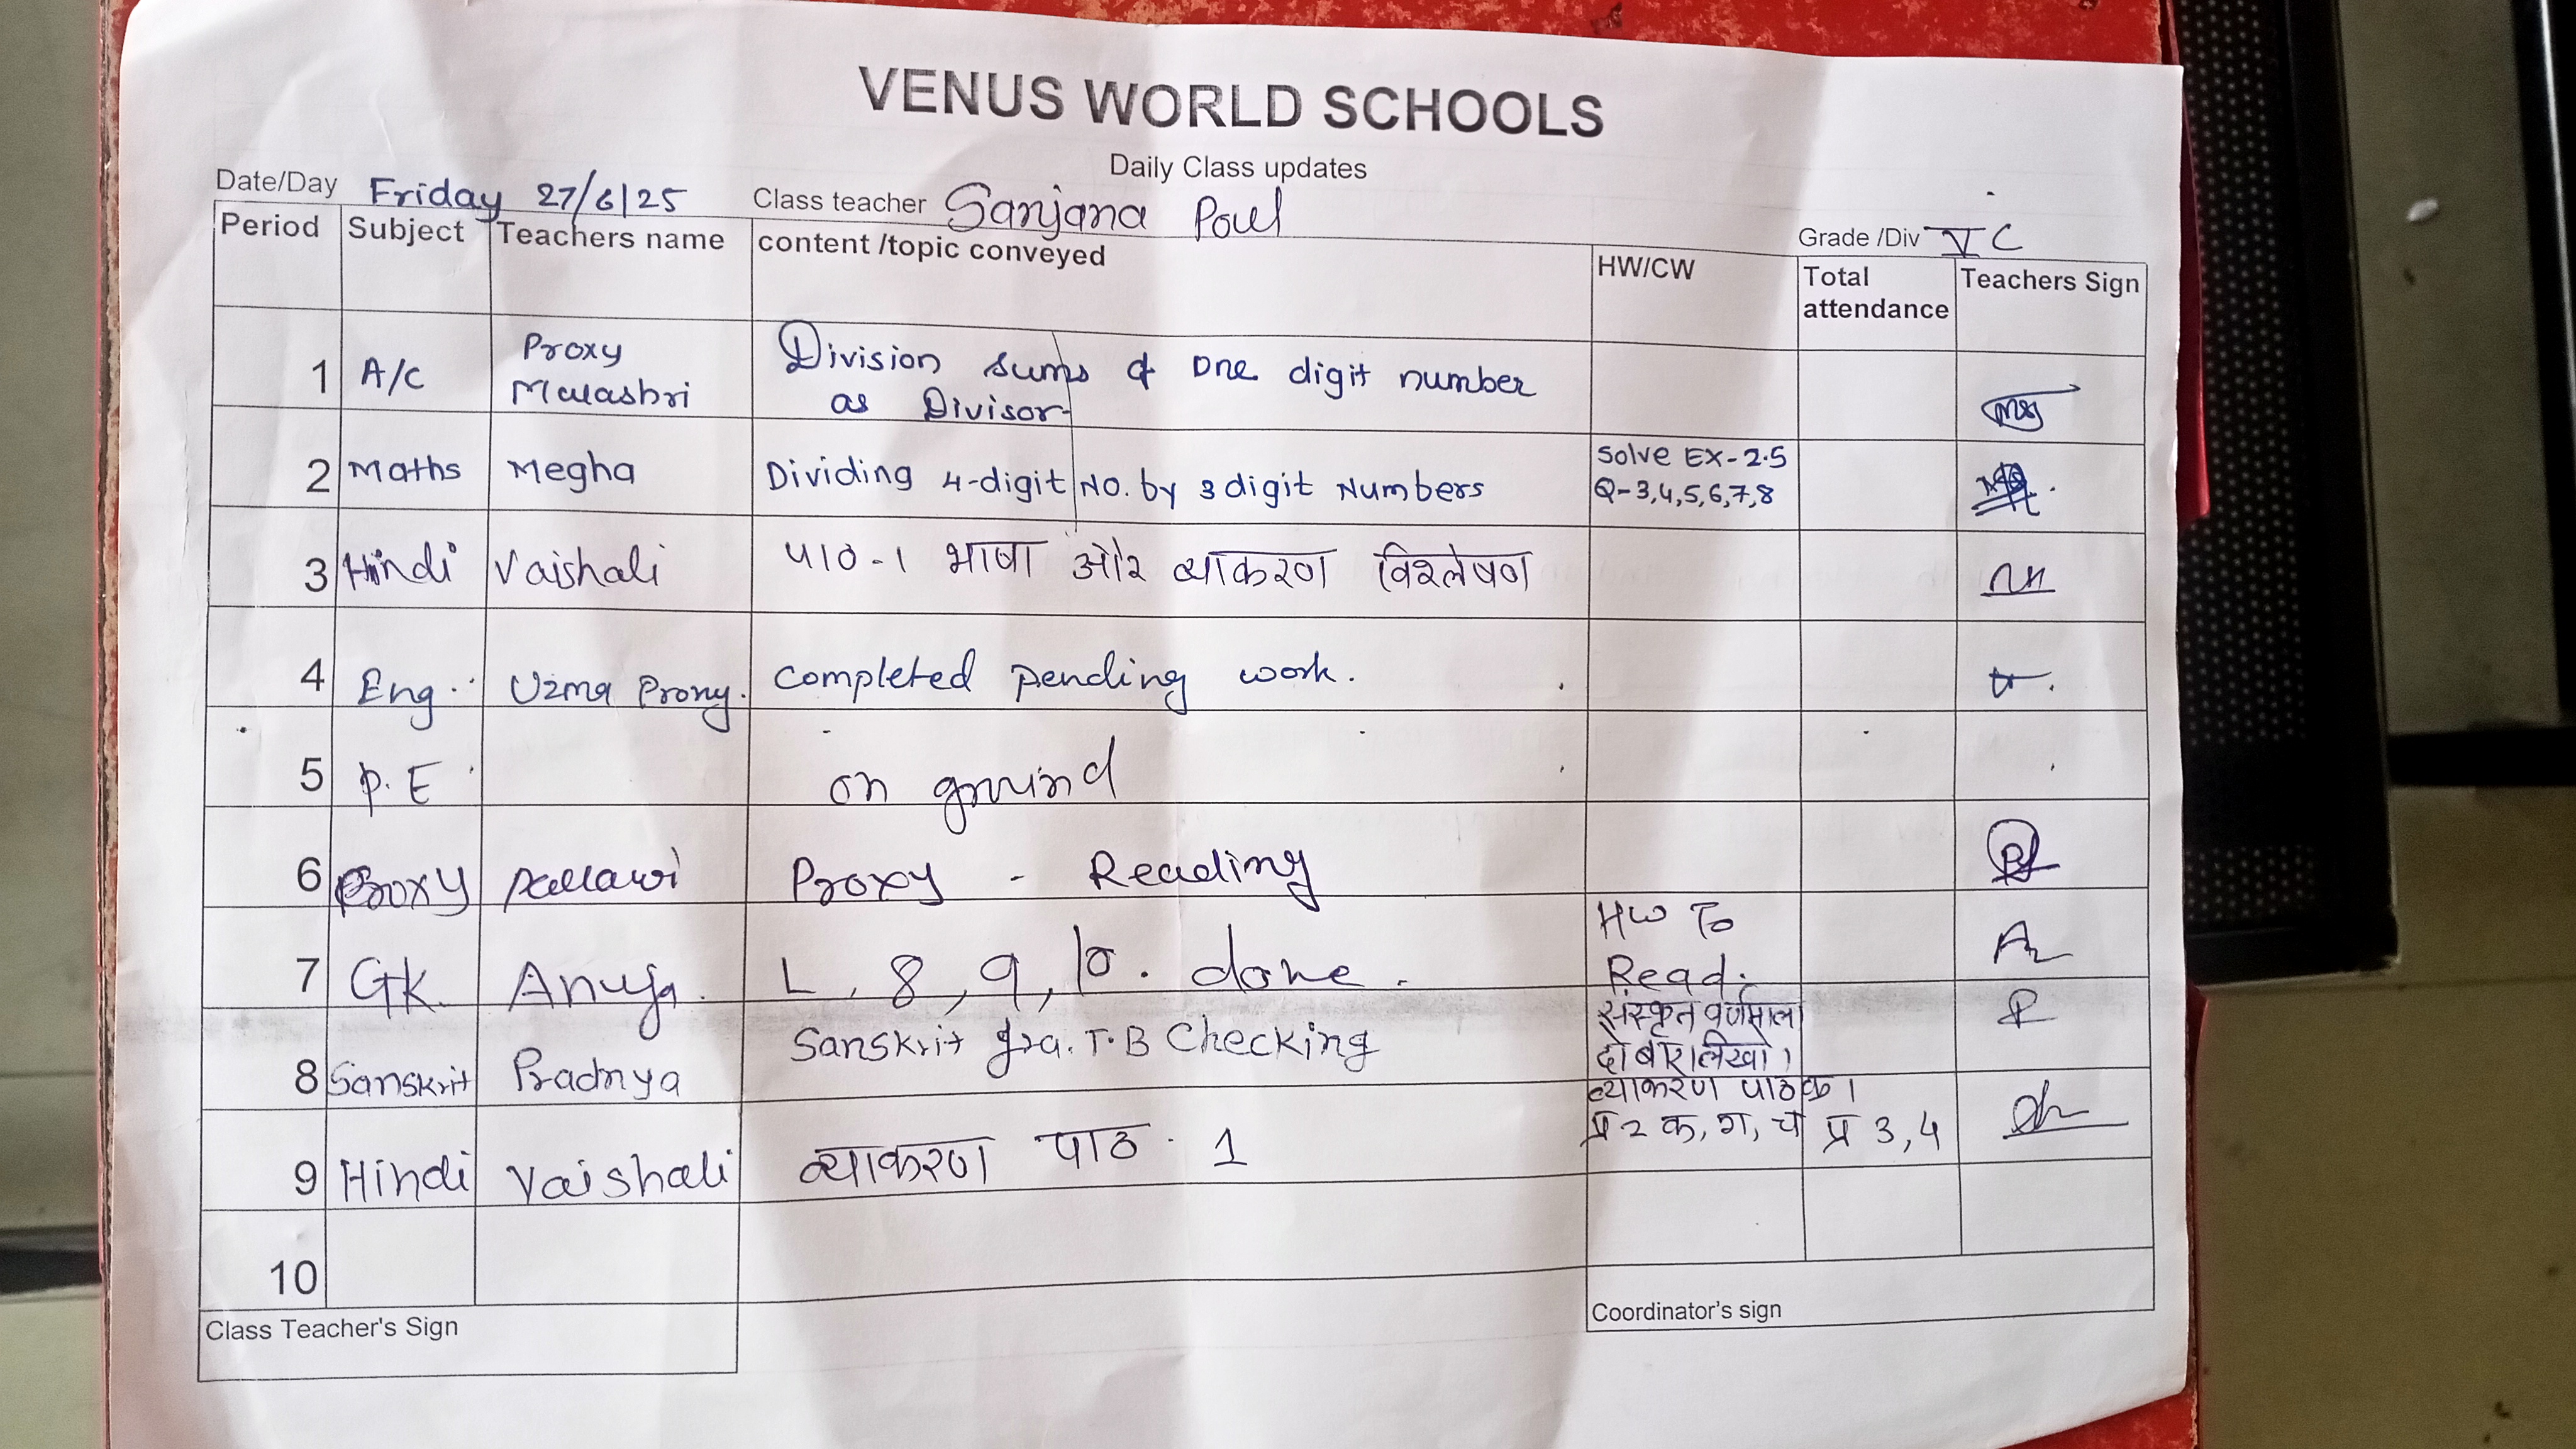 VENUS WORLD SCHOOLS
Daily Class updates
Date/Day Friday 27/6/25 Class teacher Sanjana Poul Grade /Div V C
Period Subject Teachers name content /topic conveyed HW/CW Total attendance Teachers Sign
1 A/C Proxy Malashri Division sums of one digit number
as Divisor
2 Maths Megha Dividing 4-digit NO. by 3 digit Numbers Solve EX-2.5
Q-3,4,5,6,7,8
3 Hindi Vaishali पाठ-1 भाषा और व्याकरण विश्लेषण
4 Eng. Uzma Proxy. Completed pending work.
5 P.E on ground
6 Proxy Pallawi Proxy - Reading
7 GK Anuja L. 8, 9, 10. done. HW To
Read.
8 Sanskrit Pradnya Sanskrit gra. T.B Checking संस्कृत वर्णमाला
दो बार लिखो।
9 Hindi Vaishali व्याकरण पाठ 1 व्याकरण पाठ
प्र 2 क, ग, च प्र 3, 4
10
Class Teacher's Sign Coordinator's sign